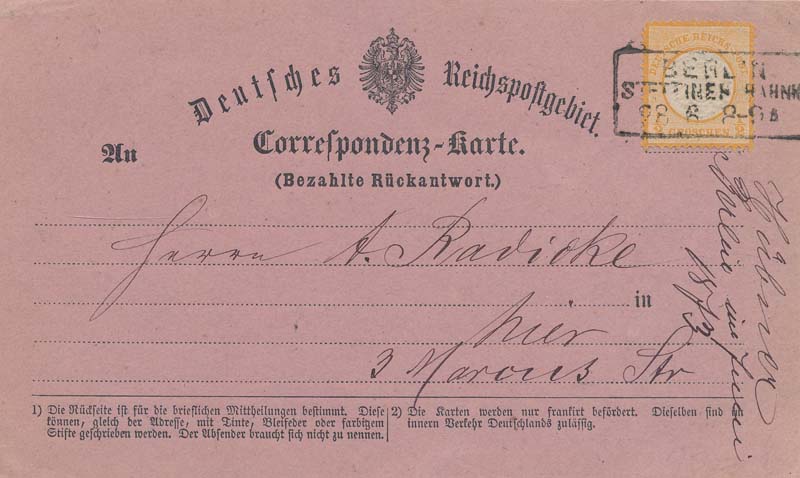 Deutsches Reichspostgebiet.
DEUTSCHE REICHS-POST
GROSCHEN
BERLIN
STETTINER BAHNH
28 6 8-9
An
Correspondenz-Karte.
(Bezahlte Rückantwort.)
Herrn A. Radicke
in
hier
3 Marcus Str
Hübner
Berlin im Juni
1873
1) Die Rückseite ist für die brieflichen Mittheilungen bestimmt. Diese
können, gleich der Adresse, mit Tinte, Bleifeder oder farbigem
Stifte geschrieben werden. Der Absender braucht sich nicht zu nennen.
2) Die Karten werden nur frankirt befördert. Dieselben sind im
innern Verkehr Deutschlands zulässig.